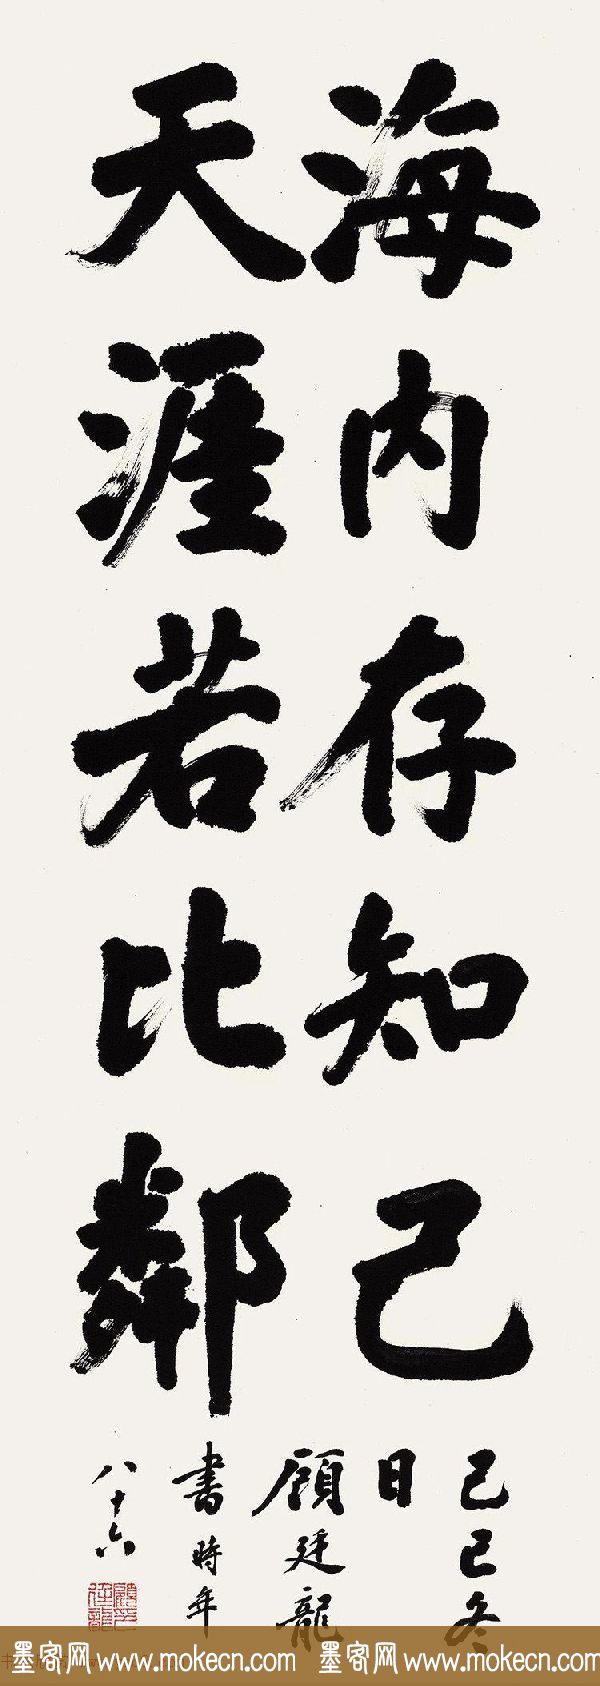 海内存知己
天涯若比鄰
己巳冬
日
顧廷龍
書時年
八十六
顧廷龍
墨客网 www.mokecn.com 墨客网 www.mokecn.com